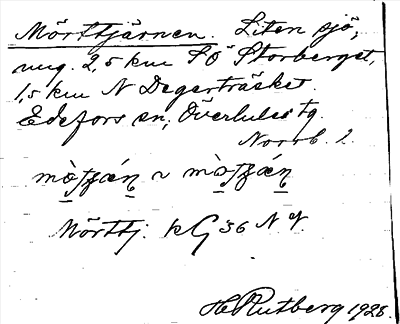 Mörttjärnen. Liten sjö,
ung. 2,5 km SÖ Storberget,
1,5 km N Degerträsket.
Edefors sn, Överlulei tg.
Norrb. l.
Mörttj. kG 36 N
H Rutberg 1928.